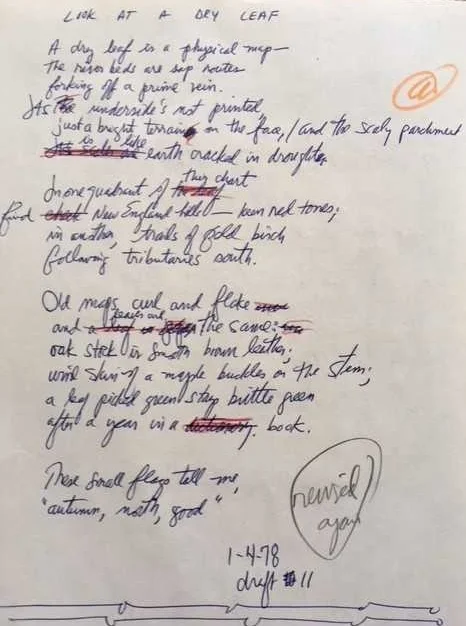 LOOK AT A DRY LEAF
A dry leaf is a physical map—
the river beds are sap routes
forking off a prime vein.
Its underside's not printed
just a bright terrain on the face, / and the scaly parchment
is like earth cracked in droughts.
In one quadrant of they chart
find New England hills — keen red tones;
in another, trails of gold birch
following tributaries south.
Old maps curl and flake
and leaves are the same:
oak stick in smooth brown leather;
wind skin of a maple buckles on the stem;
a leaf picked green stays brittle green
after a year in a dictionary. book.
These small flags tell me,
"autumn, north, good"
revised
again
1-4-78
draft #11